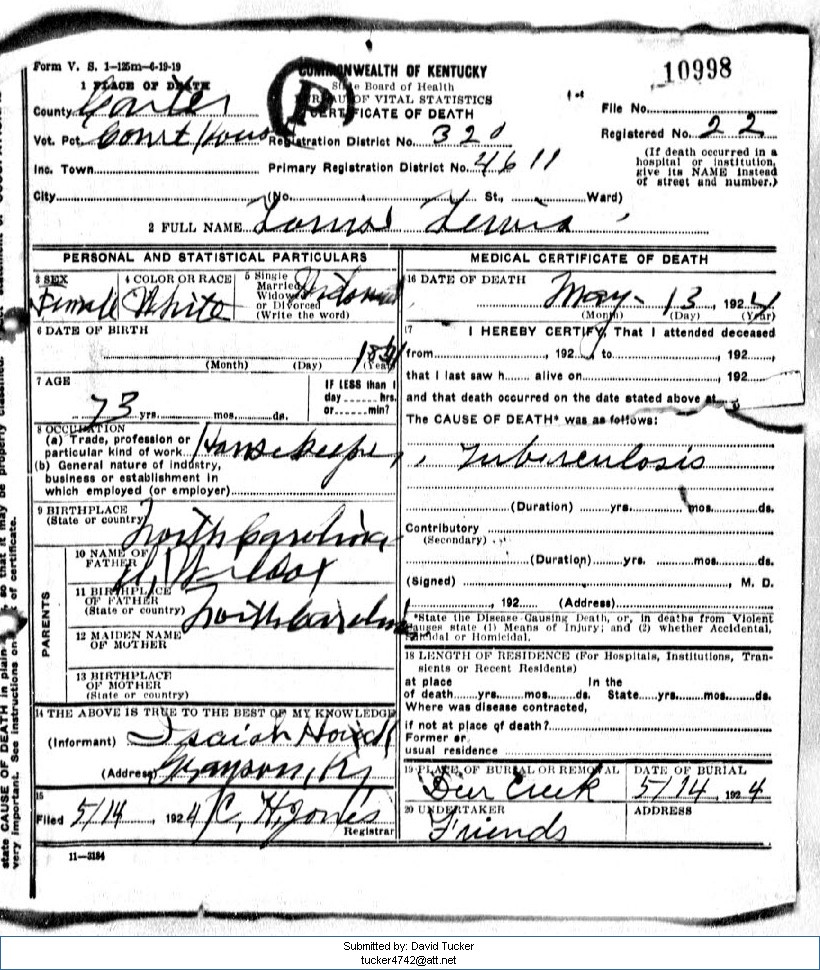 Form V. S. 1—125m—6-19-19
COMMONWEALTH OF KENTUCKY
State Board of Health
BUREAU OF VITAL STATISTICS
CERTIFICATE OF DEATH
10998
1 PLACE OF DEATH
County Carter
Vot. Pct. Court House
Inc. Town
City (No. St., Ward)
Registration District No. 320
Primary Registration District No. 4611
File No.
Registered No. 22
(If death occurred in a
hospital or institution,
give its NAME instead
of street and number.)
2 FULL NAME Lewis
PERSONAL AND STATISTICAL PARTICULARS
3 SEX
Female
4 COLOR OR RACE
White
5 Single
Married
Widowed
or Divorced
(Write the word)
Widowed
6 DATE OF BIRTH
(Month) (Day) (Year)
7 AGE
73 yrs. mos. ds.
IF LESS than 1
day hrs.
or min?
8 OCCUPATION
(a) Trade, profession or
particular kind of work Housekeeper
(b) General nature of industry,
business or establishment in
which employed (or employer)
9 BIRTHPLACE
(State or country) North Carolina
PARENTS
10 NAME OF
FATHER Wilcox
11 BIRTHPLACE
OF FATHER
(State or country) North Carolina
12 MAIDEN NAME
OF MOTHER
13 BIRTHPLACE
OF MOTHER
(State or country)
14 THE ABOVE IS TRUE TO THE BEST OF MY KNOWLEDGE
(Informant) Isaiah
(Address) Grayson, Ky
15
Filed 5/14, 1924 C. H. Jones
Registrar
11—3184
MEDICAL CERTIFICATE OF DEATH
16 DATE OF DEATH
May 13, 1924
(Month) (Day) (Year)
17 I HEREBY CERTIFY, That I attended deceased
from , 192 to , 192
that I last saw h alive on , 192
and that death occurred on the date stated above at
The CAUSE OF DEATH* was as follows:
Tuberculosis
(Duration) yrs. mos. ds.
Contributory
(Secondary)
(Duration) yrs. mos. ds.
(Signed) , M. D.
, 192 (Address)
*State the Disease Causing Death, or, in deaths from Violent
Causes state (1) Means of Injury; and (2) whether Accidental,
Suicidal or Homicidal.
18 LENGTH OF RESIDENCE (For Hospitals, Institutions, Tran-
sients or Recent Residents)
at place In the
of death yrs. mos. ds. State yrs. mos. ds.
Where was disease contracted,
if not at place of death?
Former or
usual residence
19 PLACE OF BURIAL OR REMOVAL
Deer Creek
DATE OF BURIAL
5/14 1924
20 UNDERTAKER
Friends
ADDRESS
state CAUSE OF DEATH in plain
so that it may be properly classified.
very important. See instructions on
of certificate.
Submitted by: David Tucker
tucker4742@att.net